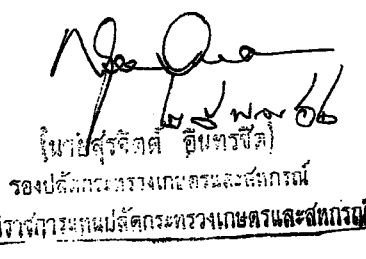 ๒๕ พ.ย. ๖๖
(นายสุรจิตต์ อินทรชิต)
รองปลัดกระทรวงเกษตรและสหกรณ์
ราชการแทนปลัดกระทรวงเกษตรและสหกรณ์